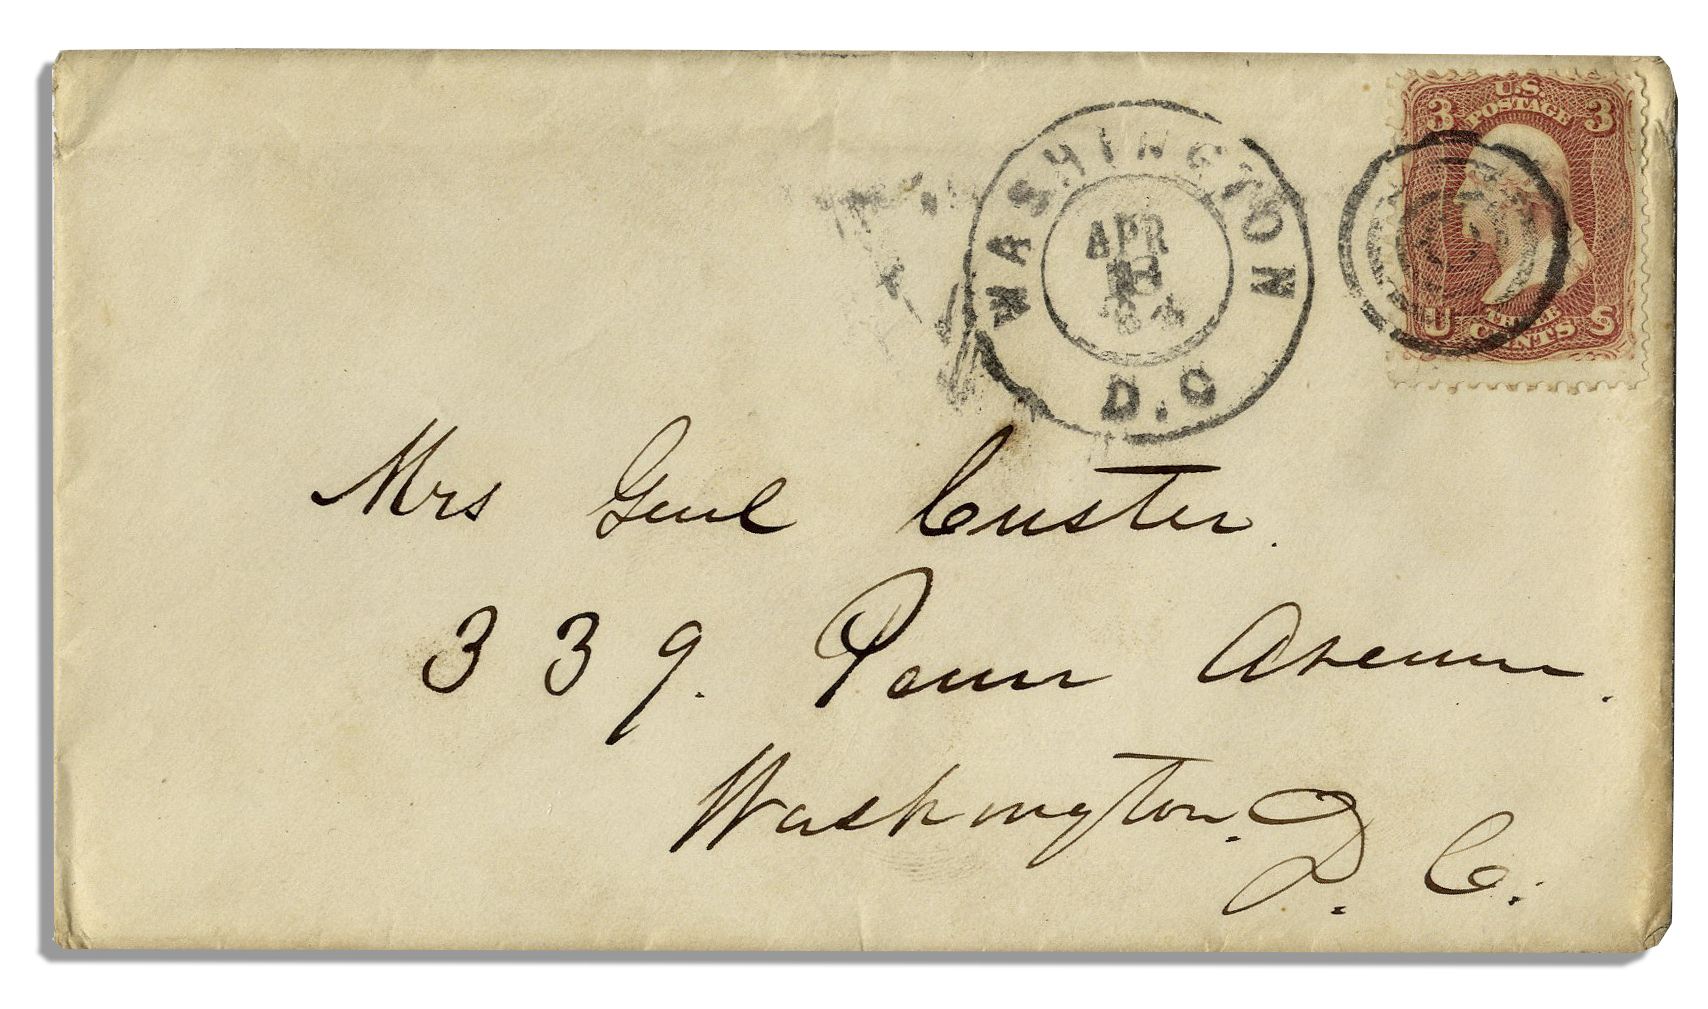 U.S.
POSTAGE
3 3
U THREE S
CENTS
WASHINGTON
APR
D.C
Mrs Genl Custer.
339. Penn Avenue.
Washington.
D. C.